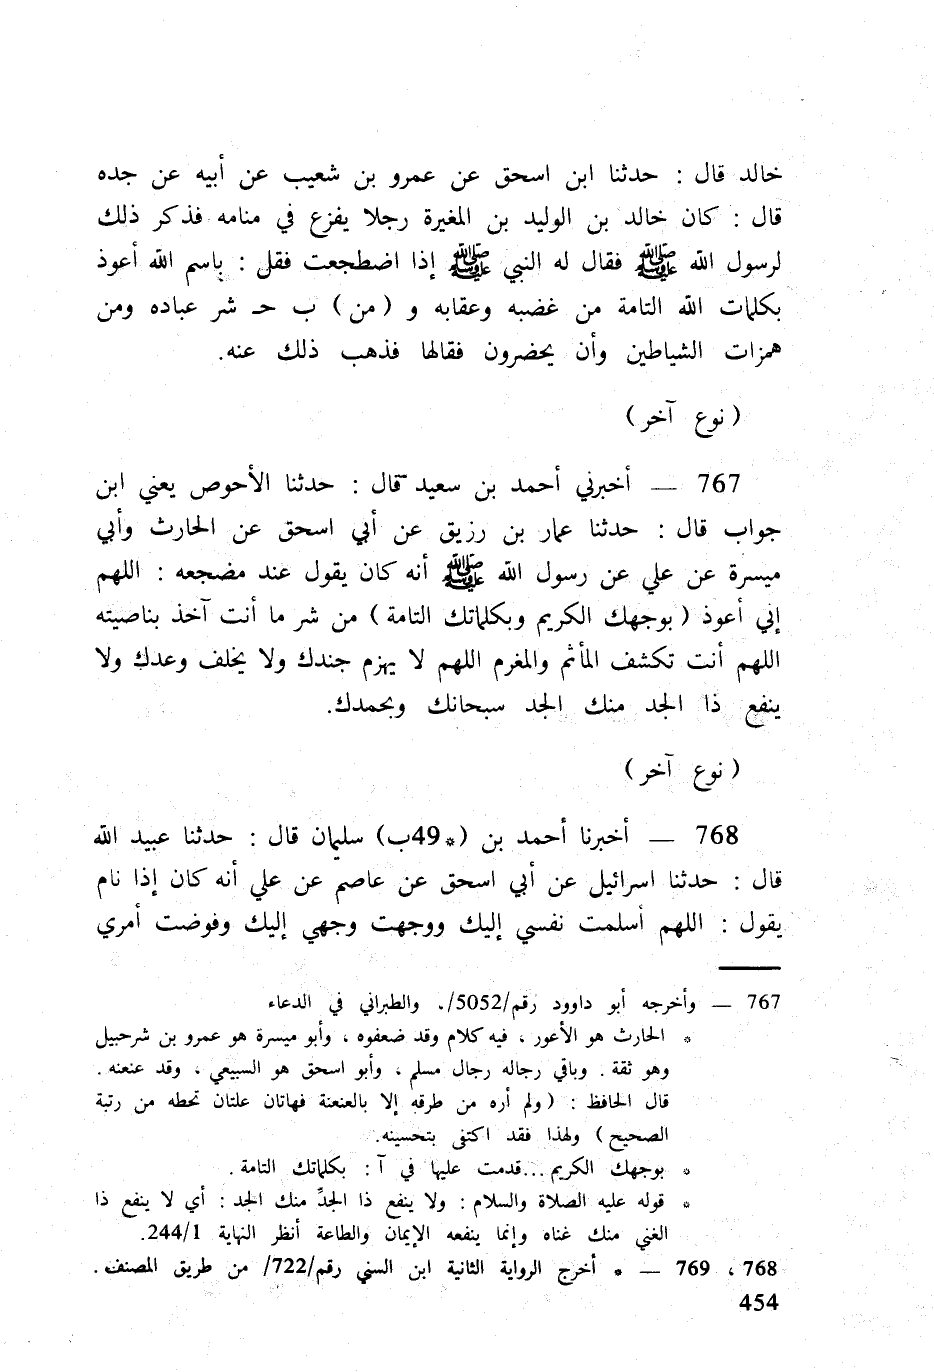 خالد قال : حدثنا ابن اسحق عن عمرو بن شعيب عن أبيه عن جده
قال : كان خالد بن الوليد بن المغيرة رجلا يفزع في منامه فذكر ذلك
لرسول الله ﷺ فقال له النبي ﷺ إذا اضطجعت فقل : باسم الله أعوذ
بكلمات الله التامة من غضبه وعقابه و ( من ) ب حـ شر عباده ومن
همزات الشياطين وأن يحضرون فقالها فذهب ذلك عنه.
( نوع آخر )
767 — أخبرني أحمد بن سعيد قال : حدثنا الأحوص يعني ابن
جواب قال : حدثنا عمار بن رزيق عن أبي اسحق عن الحارث وأبي
ميسرة عن علي عن رسول الله ﷺ أنه كان يقول عند مضجعه : اللهم
إني أعوذ ( بوجهك الكريم وبكلماتك التامة ) من شر ما أنت آخذ بناصيته
اللهم أنت تكشف المأثم والمغرم اللهم لا يهزم جندك ولا يخلف وعدك ولا
ينفع ذا الجد منك الجد سبحانك وبحمدك.
( نوع آخر )
768 — أخبرنا أحمد بن (*49ب) سليمان قال : حدثنا عبيد الله
قال : حدثنا اسرائيل عن أبي اسحق عن عاصم عن علي أنه كان إذا نام
يقول : اللهم أسلمت نفسي إليك ووجهت وجهي إليك وفوضت أمري
767 — وأخرجه أبو داوود رقم/5052/. والطبراني في الدعاء
* الحارث هو الأعور ، فيه كلام وقد ضعفوه ، وأبو ميسرة هو عمرو بن شرحبيل
وهو ثقة . وباقي رجاله رجال مسلم ، وأبو اسحق هو السبيعي ، وقد عنعنه .
قال الحافظ : ( ولم أره من طرقه إلا بالعنعنة فهاتان علتان تحطه من رتبة
الصحيح ) ولهذا فقد اكتفى بتحسينه.
* بوجهك الكريم...قدمت عليها في آ : بكلماتك التامة .
* قوله عليه الصلاة والسلام : ولا ينفع ذا الجدِّ منك الجد : أي لا ينفع ذا
الغني منك غناه وإنما ينفعه الإيمان والطاعة أنظر النهاية 244/1.
768 ، 769 — * أخرج الرواية الثانية ابن السني رقم/722/ من طريق المصنف .
454